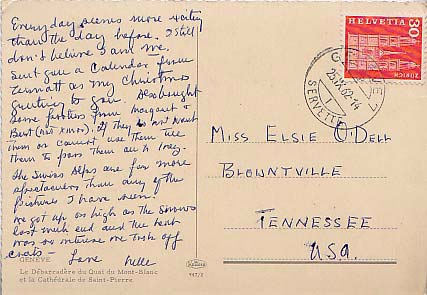 Everyday seems more exciting
than the day before. I still
don't believe I am me.
Sent you a Calendar from
Zermatt as my Christmas
greeting to you. Also bought
some from Margaret &
Bert (his Xmas). If they do not want
them or cannot use them tell
them to pass them on to
The Swiss Alps are far more
spectacular than any of the
pictures I have seen.
We got up as high as the snows
last week end and the heat
was so intense we took off
coats — Love Nelle
GENÈVE
Le Débarcadère du Quai du Mont-Blanc
et la Cathédrale de Saint-Pierre
HELVETIA
30
ZÜRICH
GENÈVE 7
25.IX.62-14
1
SERVETTE
MISS ELSIE O'DELL
BLOUNTVILLE
TENNESSEE
U.S.A.